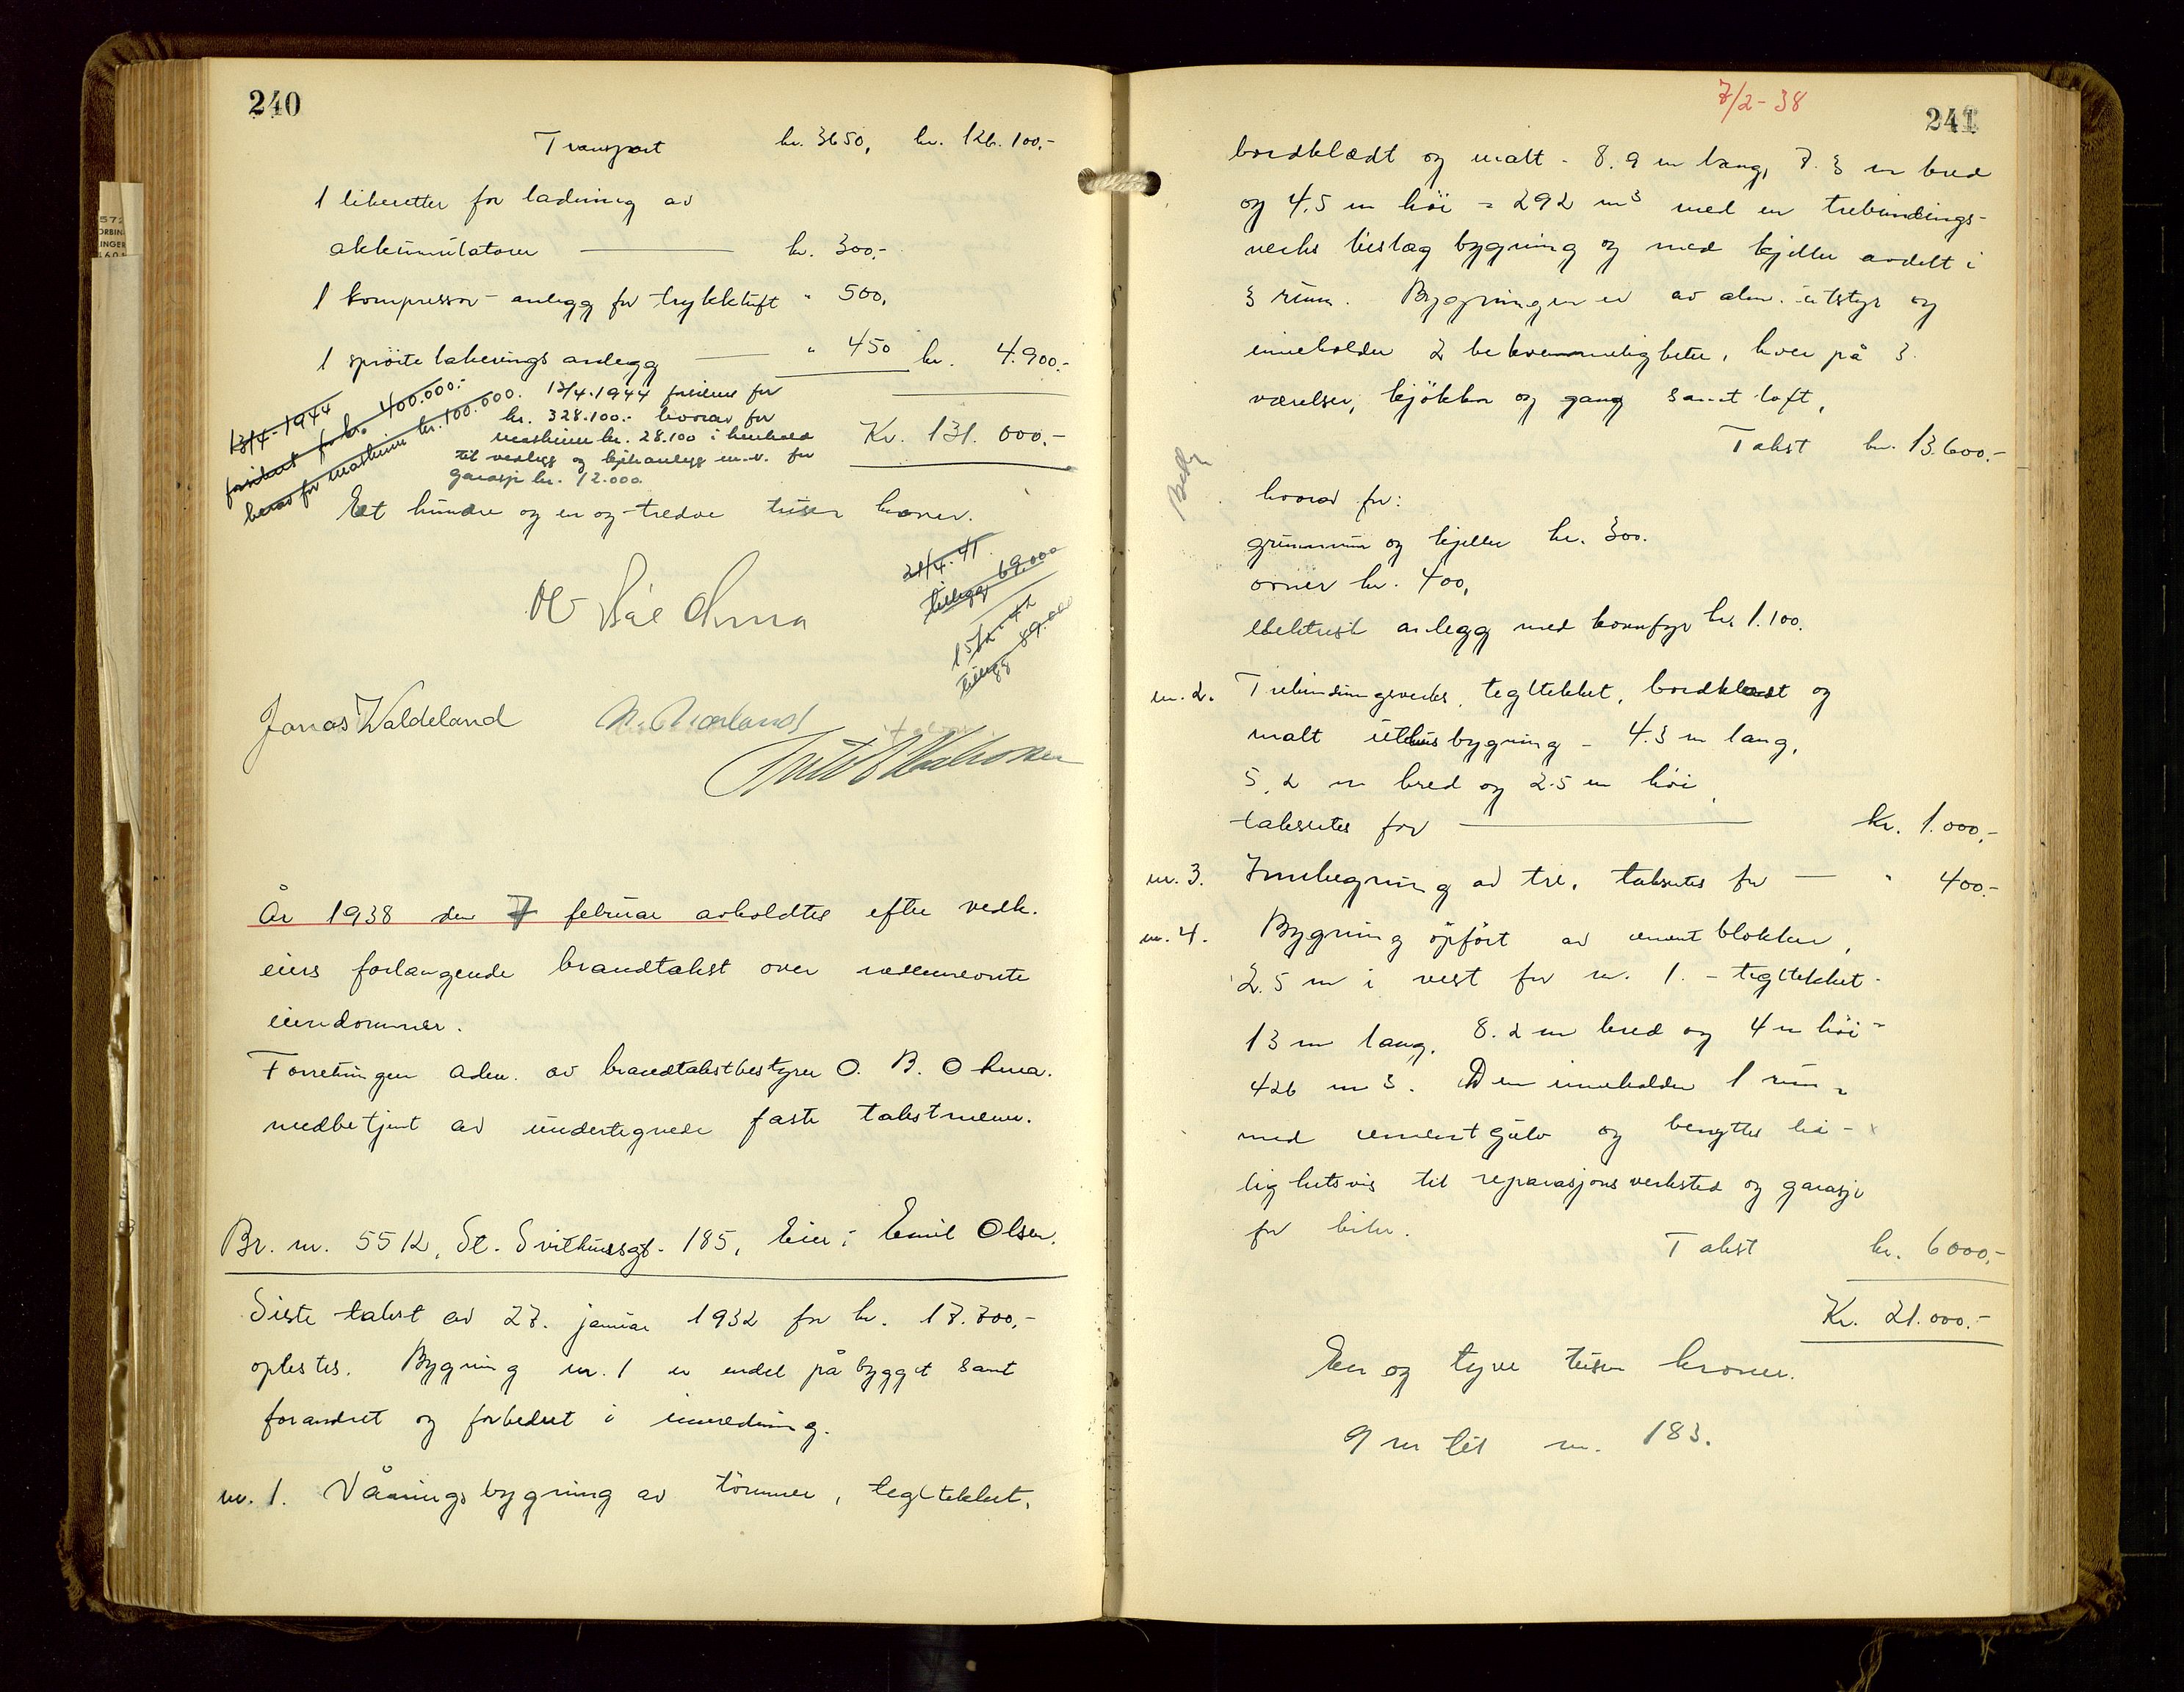 240
Transport kr. 3650, kr. 126.100.-
1 likeretter for ladning av
akkumulatorer kr. 300.-
1 kompressor-anlegg for trykkluft " 500,
1 sprøite lakerings anlegg " 450 kr. 4.900.-
13/4-1944
forsikret for kr. 400.000.-
herav for maskiner kr. 100.000.
13/4-1944 forsikres for
kr. 328.100.- hvorav for
maskiner kr. 28.100 i henhold
til vedlegg og m.v. for
garasje kr. 12.000
Kr. 131.000.-
Et hundre og en og tredve tusen kroner.
21/4-41.
tillegg 69.000
15/2-42
tillegg 89.000
Jonas Waldeland
År 1938 den 7 februar avholdtes efter vedk.
eiers forlangende brandtakst over nedennevnte
eiendommer.
Forretningen adm. av brandtakstbestyrer O. B. Okma.
medbetjent av undertegnede faste takstmenn.
Br. nr. 55 12, St. Svithunsgt. 185, Eier: Emil Olsen.
Siste takst av 27. januar 1932 for kr. 17.700,-
opleses. Bygning nr. 1 er endel på bygget samt
forandret og forbedret i innredning.
nr. 1. Våningsbygning av tömmer, teglteklet,
7/2-38
241
bordklædt og malt - 8.9 m lang, 7.3 m bred
og 4.5 m höi = 292 m3 med en trebindings-
verks bislag bygning og med kjeller avdelt i
3 rum. Bygningen er av alm. utstyr og
inneholder 2 bekvemmeligheter, hver på 3
værelser, kjökken og gang samt loft,
Takst kr. 13.600.-
hvorav for:
grunnmur og kjeller kr. 300.
ovner kr. 400,
elektrisk anlegg med komfyr kr 1.100.
nr. 2. Trebindingsverks, tegltekket, bordklædt og
malt uthusbygning - 4.3 m lang,
5,2 m bred og 2.5 m höi,
takseres for kr. 1.000,-
nr. 3. Innhegning av tre, takseres for " 400.-
nr. 4. Bygning opfört av cement blokker,
2.5 m i vest for nr. 1. - tegltekket -
13 m lang, 8.2 m bred og 4 m höi =
426 m3. Den inneholder 1 rum,
med cementgulv og benyttes lei-
lighetsvis til reparasjonsverksted og garasje
for biler.
Takst kr. 6000,-
Kr. 21.000.-
En og tyve tusen kroner.
9 m til nr. 183.